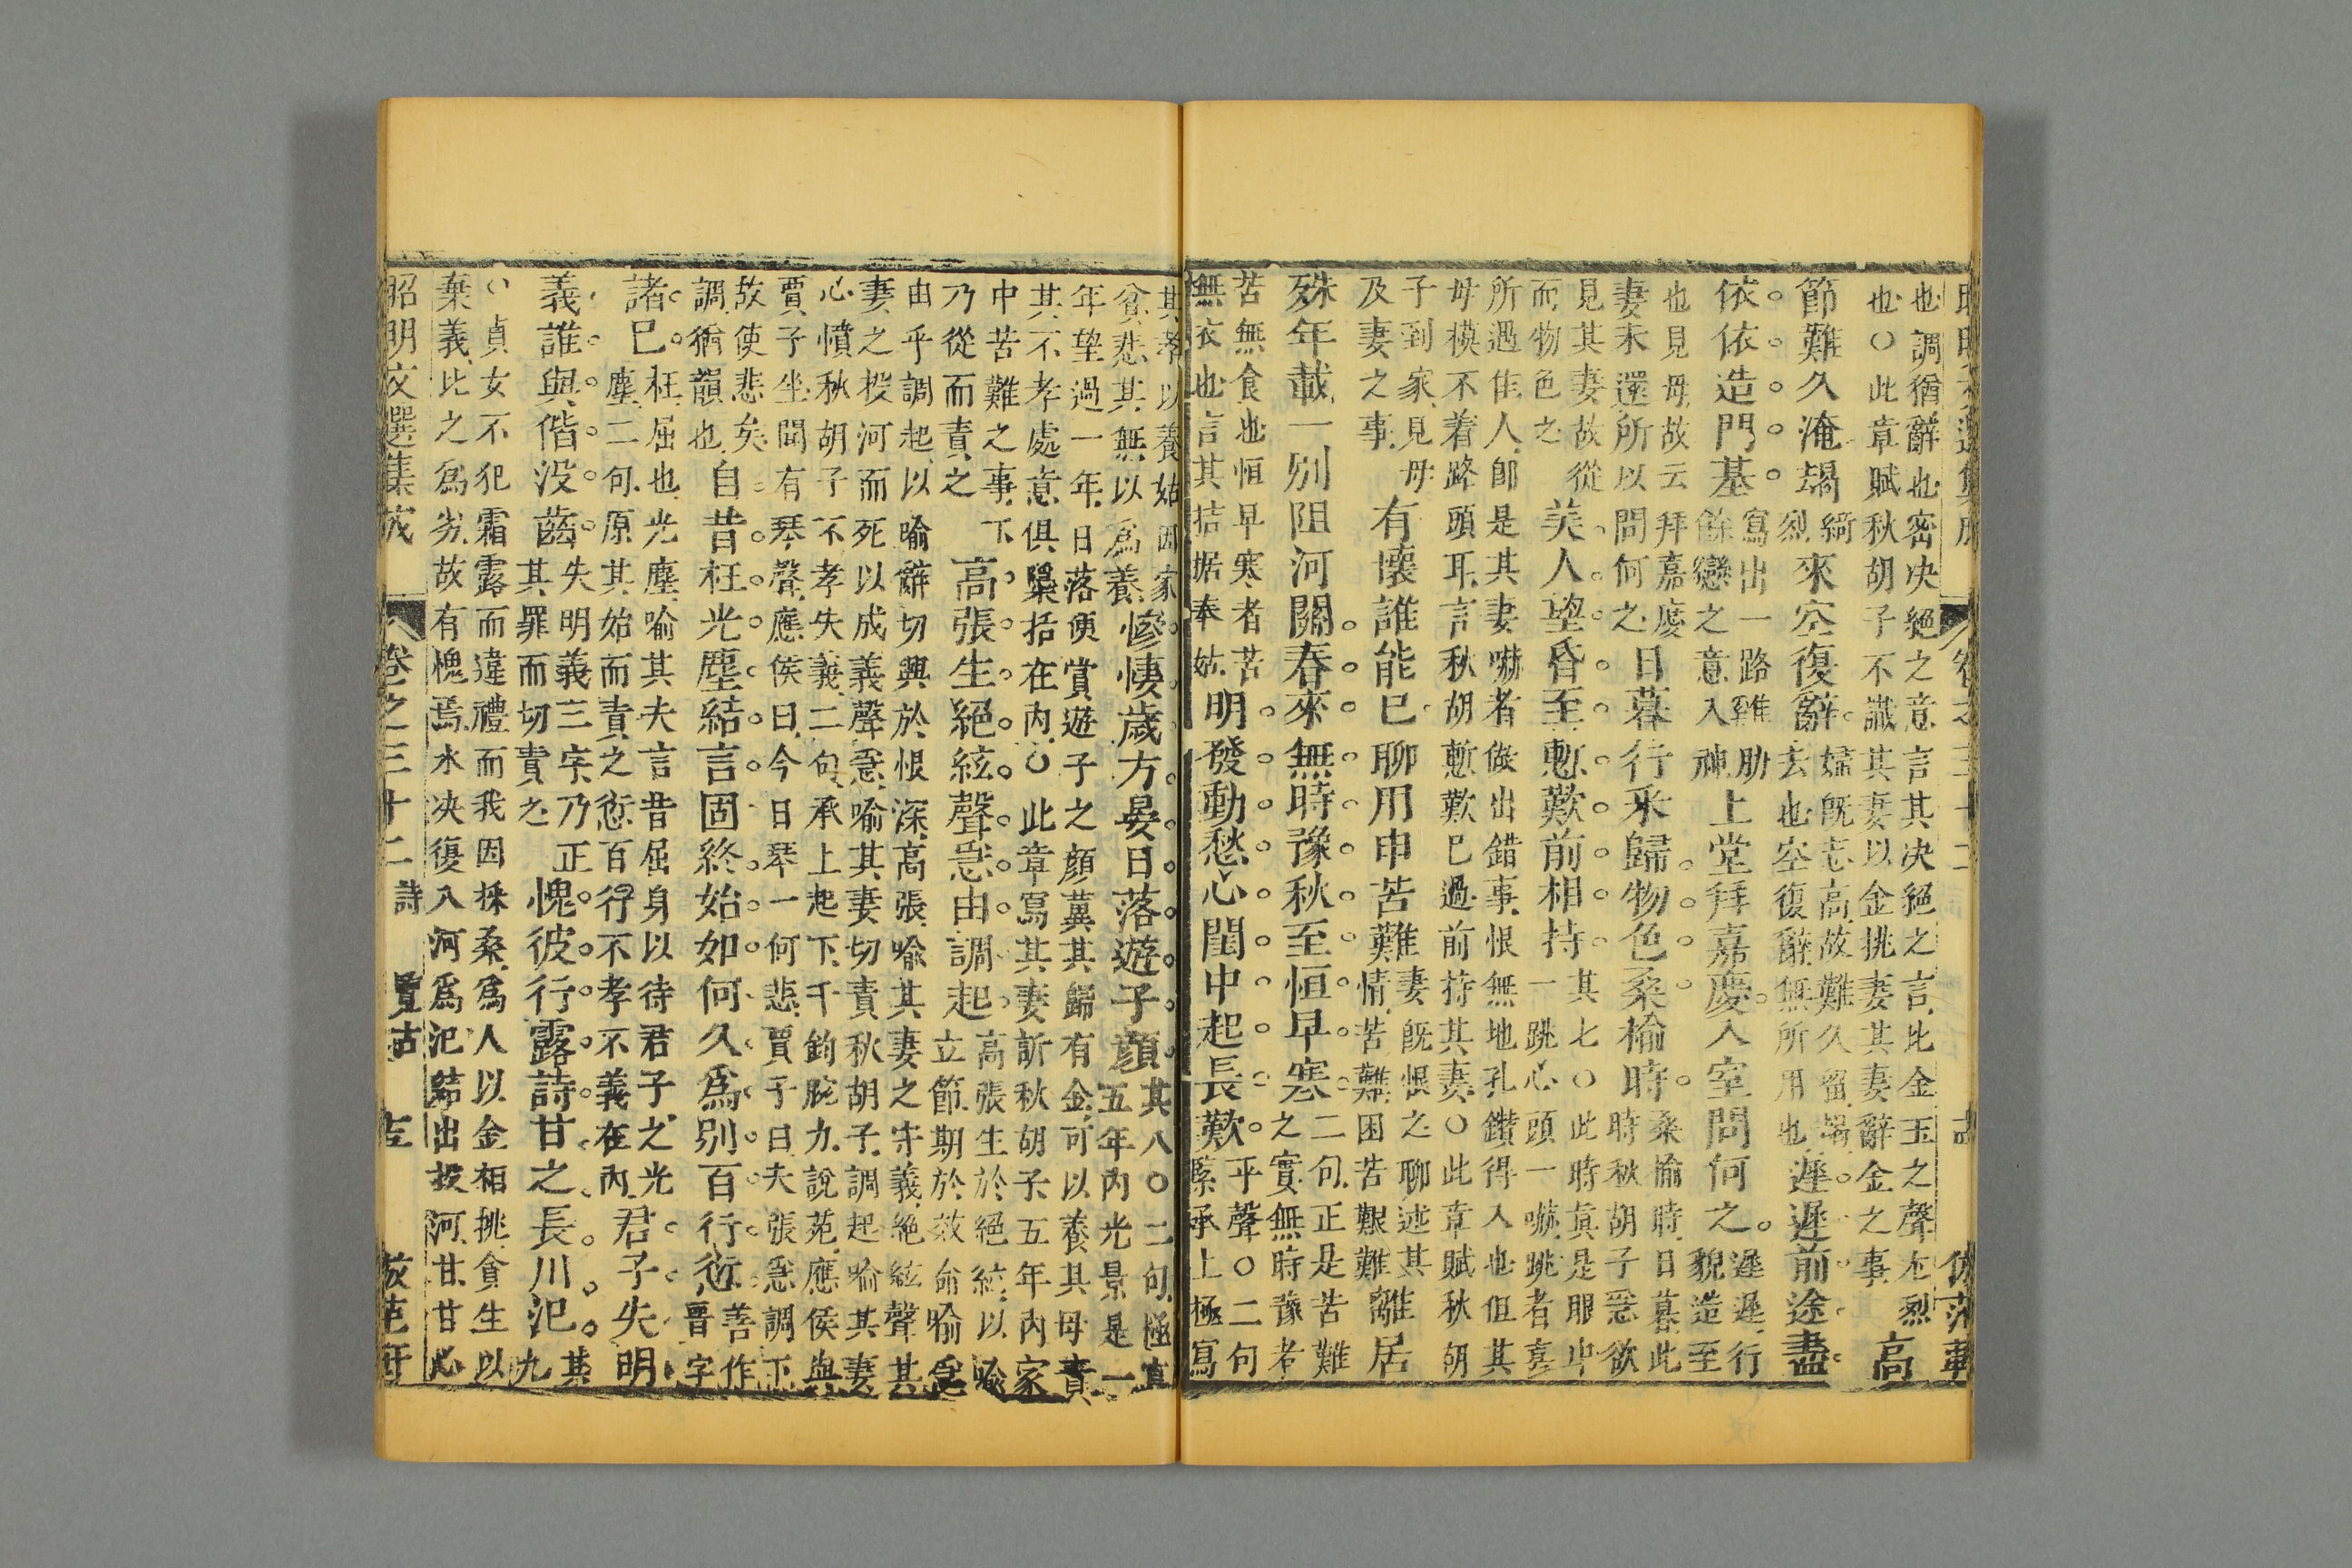 也調猶辭也密决絕之意言其决絕之言比金玉之聲尤烈
也○此章賦秋胡子不識其妻以金挑妻其妻辭金之事
高
節難久淹朅
綺
烈
來空復辭
旣志高故難久留朅
去也空復辭無所用也
遲遲前途盡
依依造門基
寫出一路雞肋
餘戀之意入神
上堂拜嘉慶入室問何之
遲遲行
貌造至
也見母故云拜嘉慶
妻未還所以問何之
日暮行釆歸物色桑榆時
桑榆時日暮此
時秋胡子急欲
見其妻故從
而物色之
美人望昏至慙歎前相持
其七○此時真是眼中
一跳心頭一嚇跳者喜
所遇佳人卽是其妻嚇者做出錯事恨無地孔鑽得入也但其
母模不着路頭耳言秋胡慙歎已過前持其妻○此章賦秋胡
子到家見母
及妻之事
有懷誰能已聊用申苦難
妻旣恨之聊述其
情苦難困苦艱難
離居
殊年載一別阻河關春來無時豫秋至恒早寒
二句正是苦難
之實無時豫者
苦無食也恒早寒者苦
無衣也言其拮据奉姑
明發動愁心閨中起長歎
平聲○二句
緊承上極寫
其孝以養姑因家
貧悲其無以爲養
慘悽歲方晏日落遊子顏
其八○二句極真
五年内光景是一
年望過一年日落便賞遊子之顏冀其歸有金可以養其母責
其不孝處意俱檃括在内○此章寫其妻訴秋胡子五年内家
中苦難之事下
乃從而責之
高張生絕絃聲急由調起
高張生於絕絃以喻
立節期於效命喻急
由乎調起以喻辭切興於恨深高張喻其妻之守義絕絃聲其
妻之投河而死以成義聲急喻其妻切責秋胡子調起喻其妻
心憤秋胡子不孝失義二句承上起下千鈞腕力說苑應侯與
賈子坐聞有琴聲應侯曰今日琴一何悲賈子曰夫張急調下
故使悲矣
調猶韻也
自昔枉光塵結言固終始如何久爲別百行愆
善作
晉字
諸已
枉屈也光塵喻其夫言昔屈身以待君子之光
塵二句原其始而責之愆百行不孝不義在内
君子失明
義誰與偕没齒
失明義三字乃正
其罪而切責之
愧彼行露詩甘之長川汜
其
九
○貞女不犯霜露而違禮而我因採桑爲人以金相挑貪生以
棄義比之爲劣故有愧焉水决復入河爲汜結出投河甘甘心
昭明文選集成 卷之三十二 詩 覽古